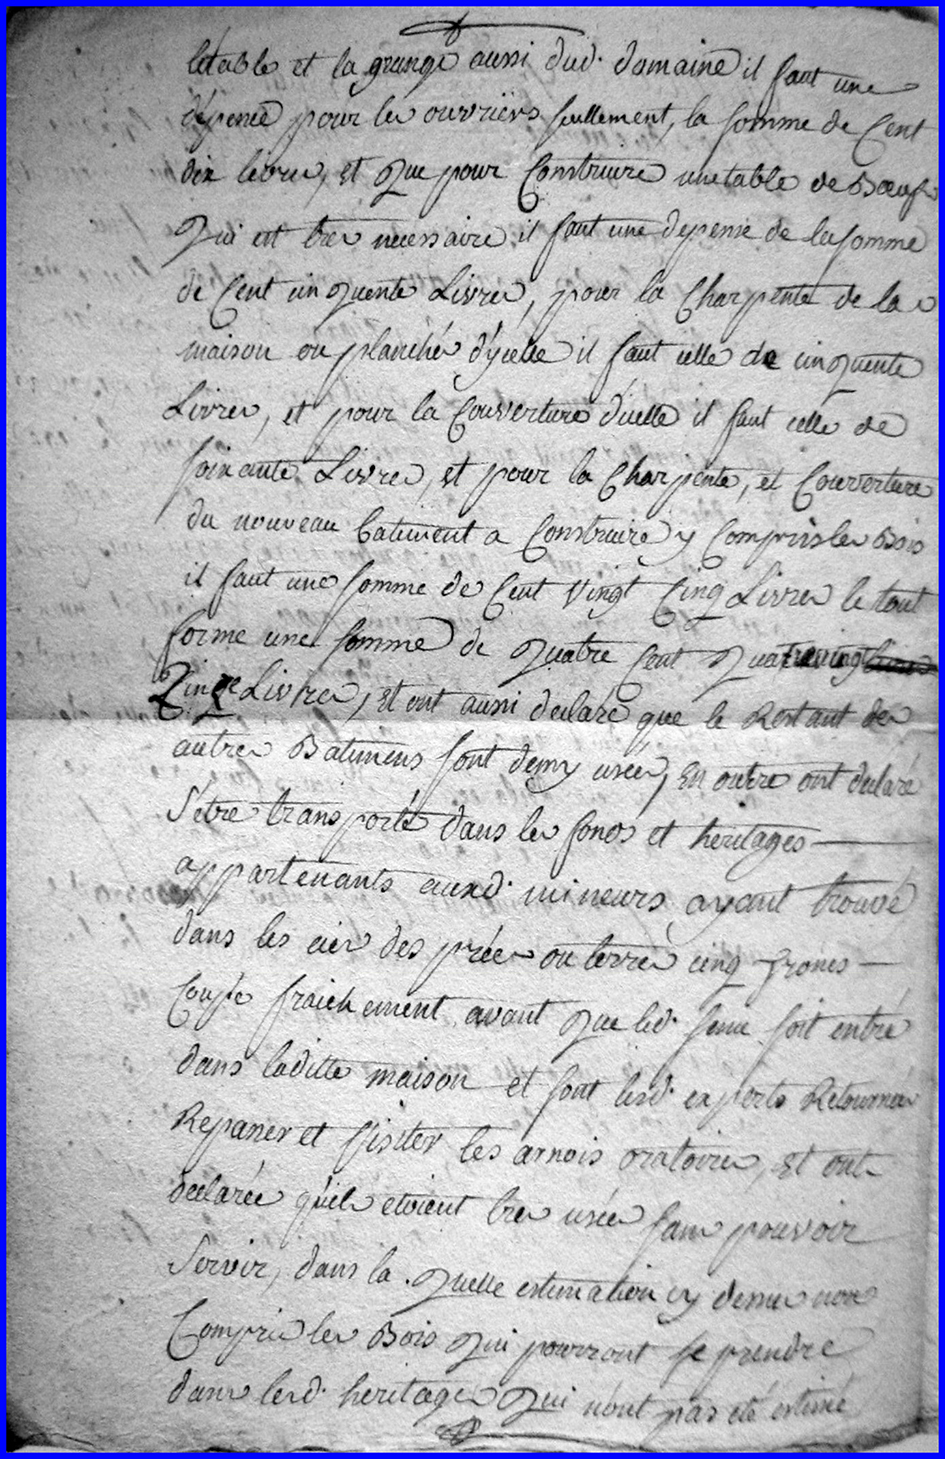 letable et la grange aussi dud. domaine il faut une
depence pour les ouvriers seullement, la somme de Cent
dix livres, et que pour Construire unetable de Bœufs
qui est tres necessaire il faut une depense de la somme
de Cent cinquente Livres, pour la Charpente de la
maison ou planché d'ycelle il faut celle de cinquente
Livres, et pour la Couverture d'icelle il faut celle de
soixante Livres, et pour la Charpente, et Couverture
du nouveau batiment a Construire y Compris les Bois
il faut une somme de Cent vingt Cinq Livres le tout
forme une somme de quatre Cent quatrevingt
quinze Livres, et ont aussi declaré que le Restant des
autres Batimens sont demy usées, En outre ont declaré
s'etre transporté dans les fonds et heritages
appartenants auxd. mineurs ayant trouvé
dans les des prées ou terres cinq
Coupé fraichement avant que led. soit entré
dans laditte maison et sont lesd. experts Retournés
et visiter les arnois oratoires, et ont
declarée quils etoient tres usées sans pouvoir
servir, dans la quelle estimation cy dessus non
Compris les Bois qui pourront se prendre
dans lesd. heritages qui nont pas été estimé